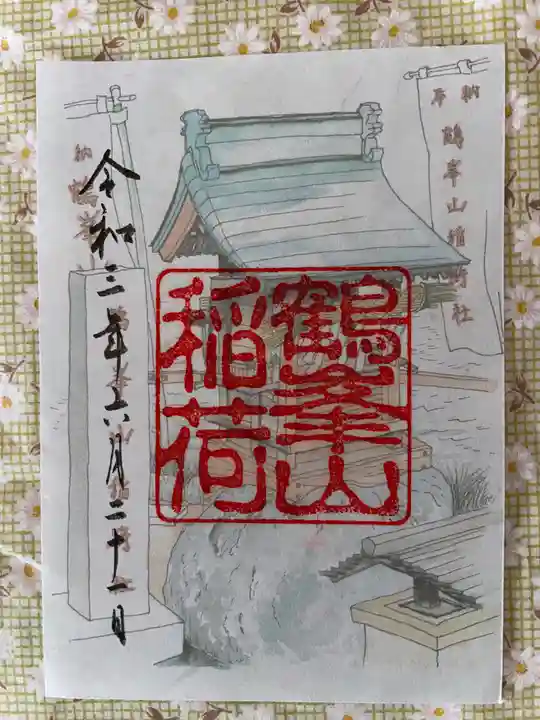 奉納
鶴峯山稲荷社
鶴峯山
稲荷
納
令和三年六月二十一日